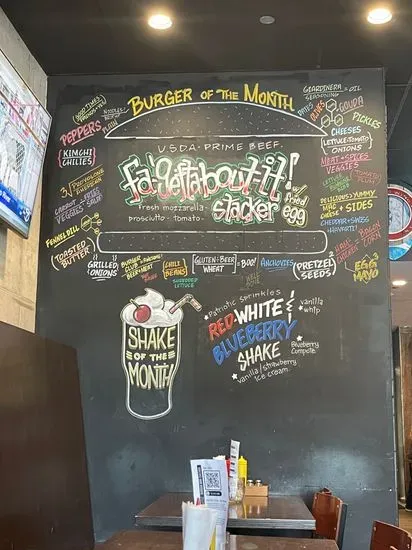 BURGER OF THE MONTH
USDA-PRIME BEEF
fa'gettabout-it!
w/ fried egg
stacker
fresh mozzarella
prosciutto - tomato
GIARDINERA - OIL
SEASONING
OLIVES
GOUDA
PICKLES
CHEESES
LETTUCE-TOMATO
ONIONS
MEAT + SPICES
VEGGIES
DELICIOUS YUMMY
TUNE + SIDES
CHEESE
CHEDDAR-SWISS
HAVARTI
EGG
MAYO
GOOD TIMES
PEPPERS
KIMCHI
CHILIES
PROVOLONE
VEGGIES
FENNEL DILL
TOASTED
BUTTER
GRILLED
ONIONS
BURGER + AWESOME
CLUB
BEER + MEAT
CHILI
BEANS
SHREDDED
LETTUCE
GLUTEN + BEER
WHEAT
BOO!
ANCHOVIES
PRETZEL
SEEDS
SHAKE
OF THE
MONTH
Patriotic sprinkles
RED WHITE &
BLUEBERRY
SHAKE
vanilla
whip
Blueberry
Compote
vanilla/strawberry
ice cream